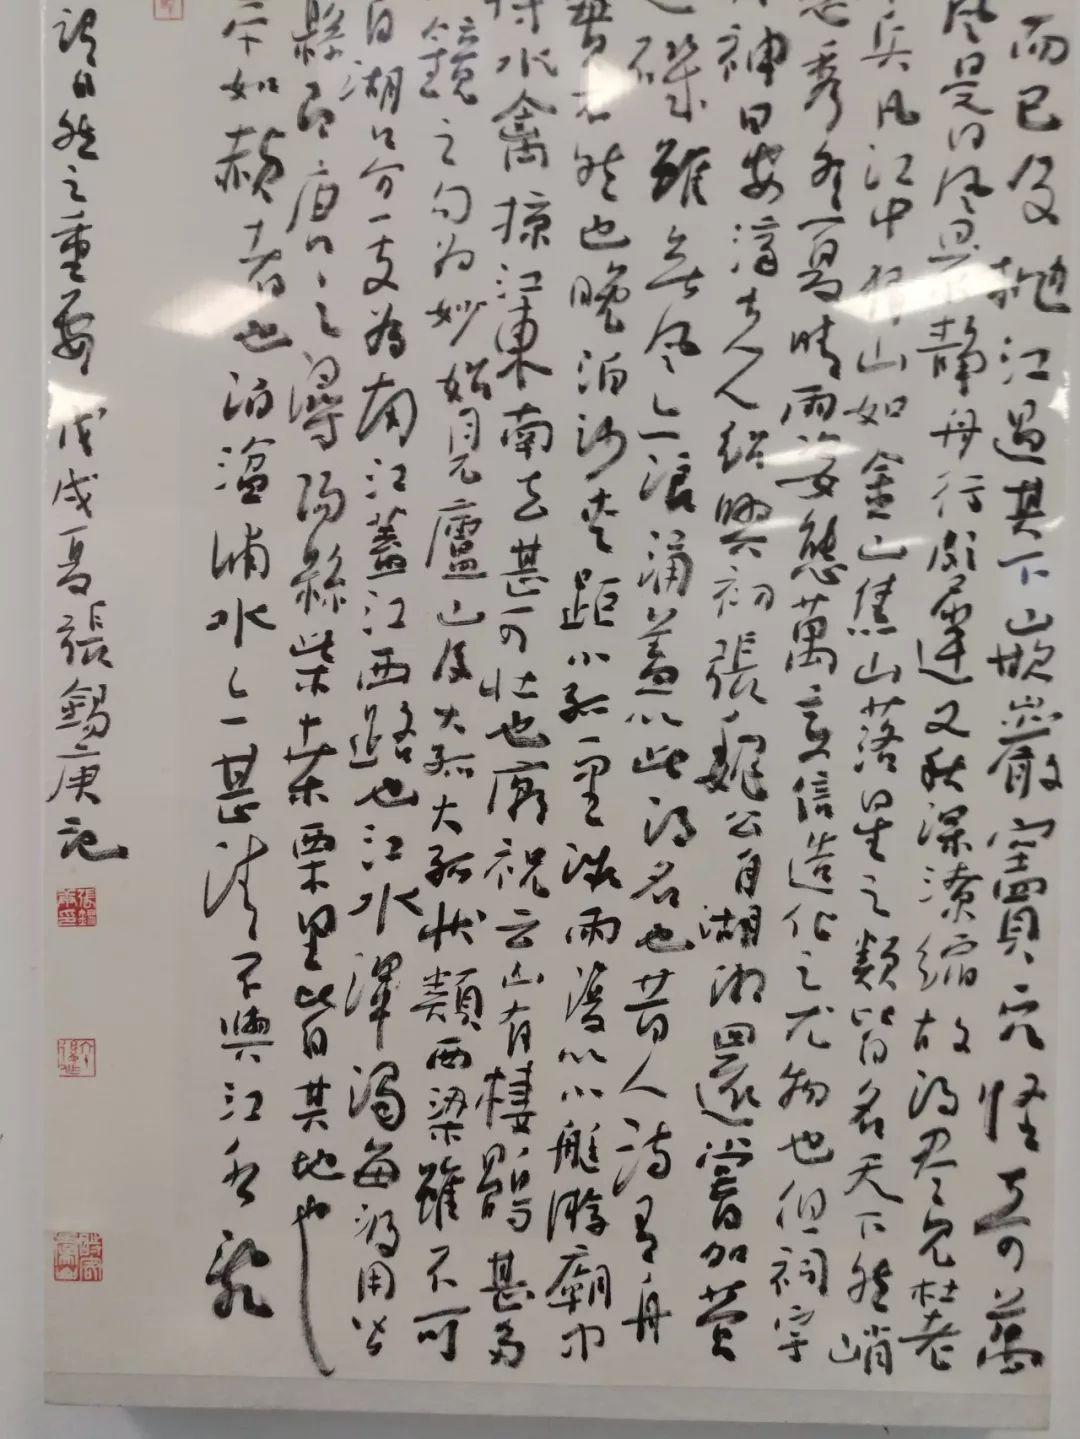 而已及抛江過其下山嵌巖竇穴怪奇萬
風是日風甚静舟行頗遲又秋深潦縮故得尽見杜老
兵凡江中獨山如金山焦山落星之類皆名天下然峭
愈秀冬夏晴雨姿態萬變信造化之尤物也但祠宇
神曰安濟夫人紹興初張魏公自湖湘回還嘗加營
磯雖無風亦浪涌蓋以此得名也昔人詩有舟
實不然也晚泊沙夾距小孤一里微雨復以小艇游廟中
水禽掠江東南去甚可壯也廟祝云山有棲鶻甚多
鏡之句為妙始見廬山及大孤大孤狀類西梁雖不可
自湖口分一支為南江蓋江西路也江水渾濁每汲用皆
縣即唐之潯陽縣柴桑栗里皆其地也
字如者也泊湓浦水亦甚清不與江水亂
謂自然之重要 戊戌夏張錫庚記